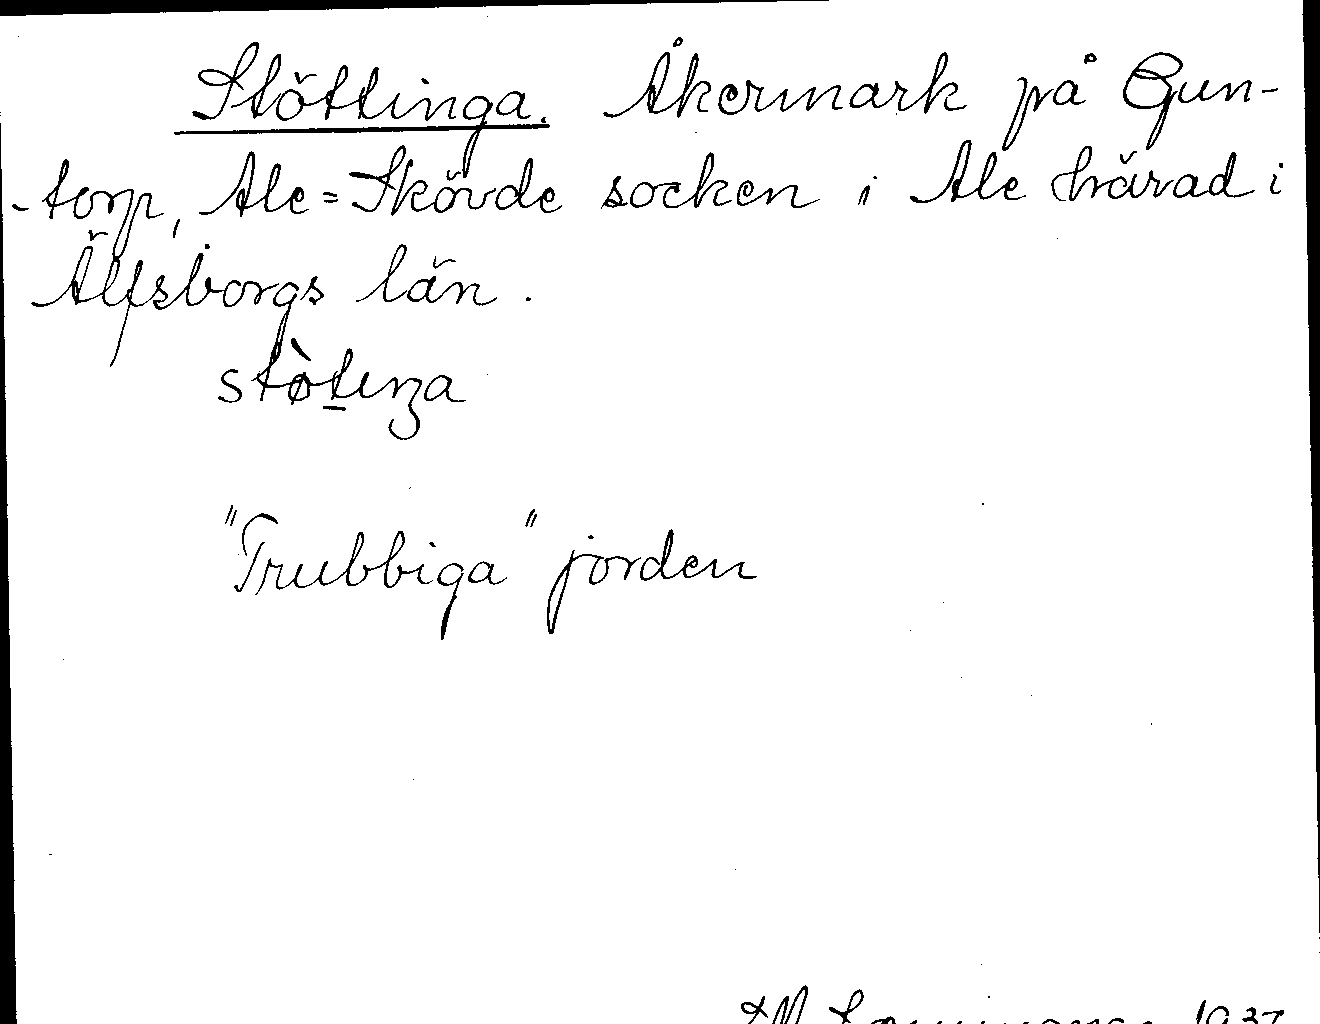 Stöttinga. Åkermark på Gun-
-torp, Ale=Skövde socken i Ale härad i
Älfsborgs län.
stòt̲ıŋa
"Trubbiga" jorden
1937